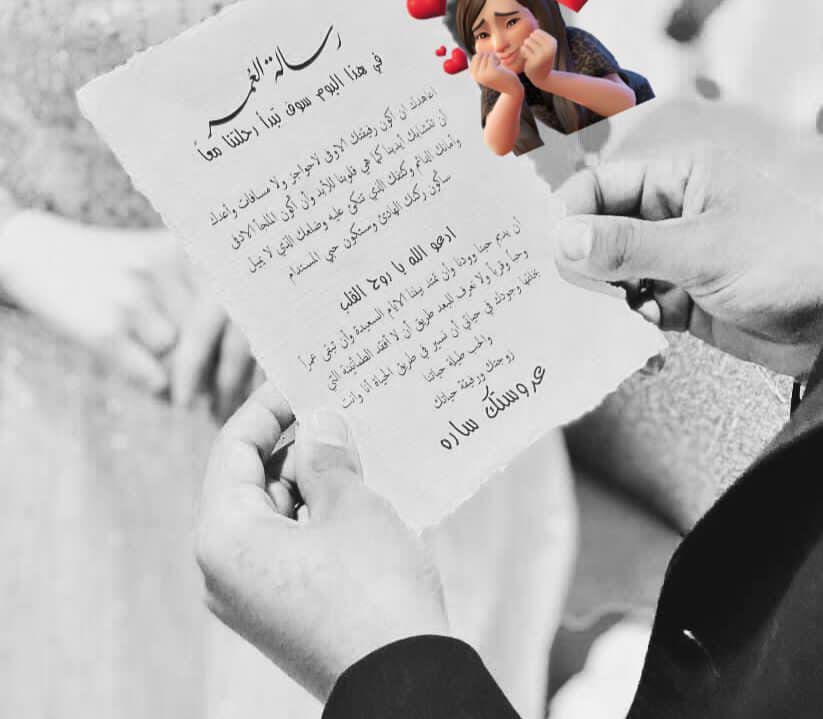 رسالة العمر
في هذا اليوم سوف تبدأ رحلتنا معاً
اعاهدك ان أكون رفيقتك الاوفى لاحواجز ولا مسافات وأعدك
أن تتشابك أيدينا كما هي قلوبنا للأبد وأن أكون الملجأ الادفى
وأمانك الدائم وكتفك الذي تتكئ عليه وضلعك الذي لا يميل
سأكون ركنك الهادئ وستكون حبي المستدام
ادعو الله يا روح القلب
أن يديم حبنا وودنا وأن تمتد بيننا الايام السعيدة وأن تبقى عمراً
وحباً وقرباً ولا نعرف للبعد طريق أن لا أفقد الطمأنينة التي
يخلقها وجودك في حياتي أن نسير في طريق الحياة أنا وانت
والحب طيلة حياتنا
زوجتك ورفيقة حياتك
عروستك ساره